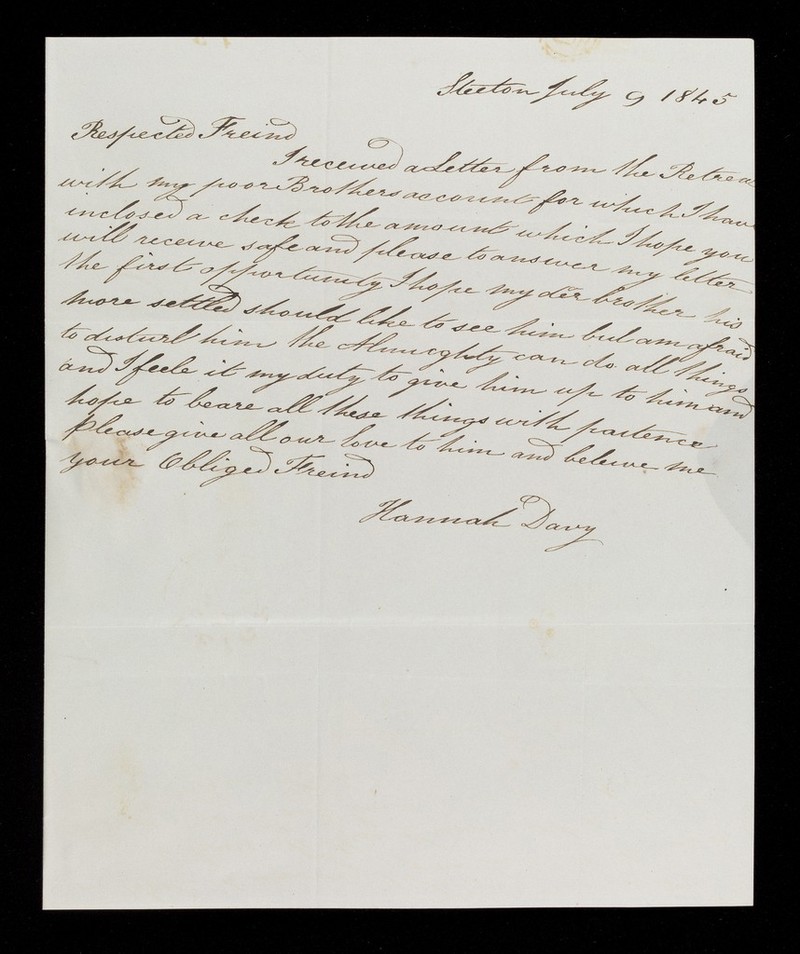 Steeton July 9 1845
Respected Freind
I received a Letter from the Retrea
with my poor Brothers account for which I hav
inclosed a check to the amount which I hope you
will receive safe and please to answer my letter
the first opportunity I hope my der brother his
more settled should like to see him but am afraid
to disturb him the Almucghty can do all things
and I feele it my duty to give him up to him and
hope to beare all these things with paitence
Please give all our love to him and beleive me
your Obliged Freind
Hannah Davy